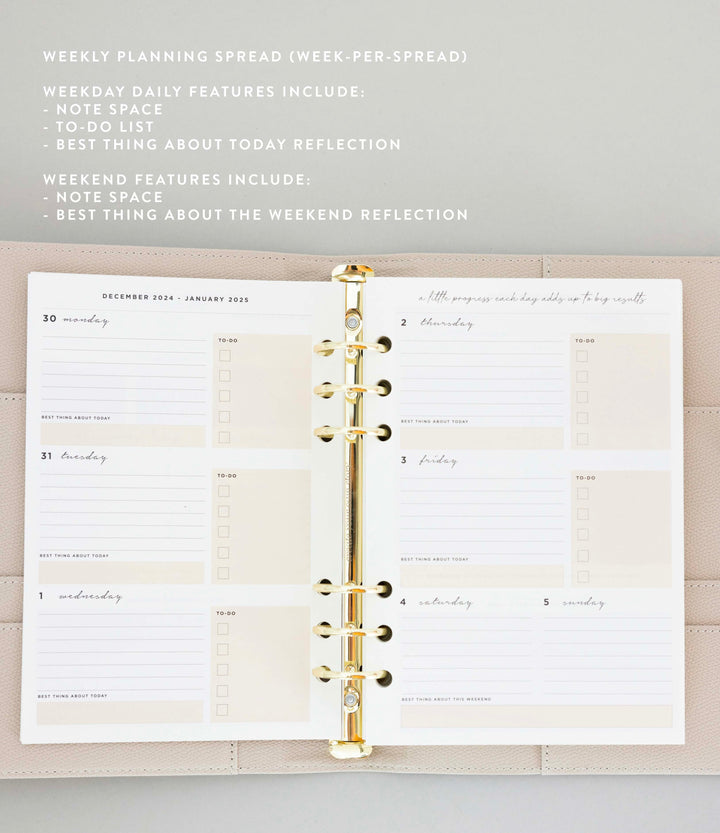 WEEKLY PLANNING SPREAD (WEEK-PER-SPREAD)
WEEKDAY DAILY FEATURES INCLUDE:
- NOTE SPACE
- TO-DO LIST
- BEST THING ABOUT TODAY REFLECTION
WEEKEND FEATURES INCLUDE:
- NOTE SPACE
- BEST THING ABOUT THE WEEKEND REFLECTION
DECEMBER 2024 - JANUARY 2025
30 monday
TO-DO
BEST THING ABOUT TODAY
31 tuesday
TO-DO
BEST THING ABOUT TODAY
1 wednesday
TO-DO
BEST THING ABOUT TODAY
a little progress each day adds up to big results
2 thursday
TO-DO
BEST THING ABOUT TODAY
3 friday
TO-DO
BEST THING ABOUT TODAY
4 saturday 5 sunday
BEST THING ABOUT THIS WEEKEND